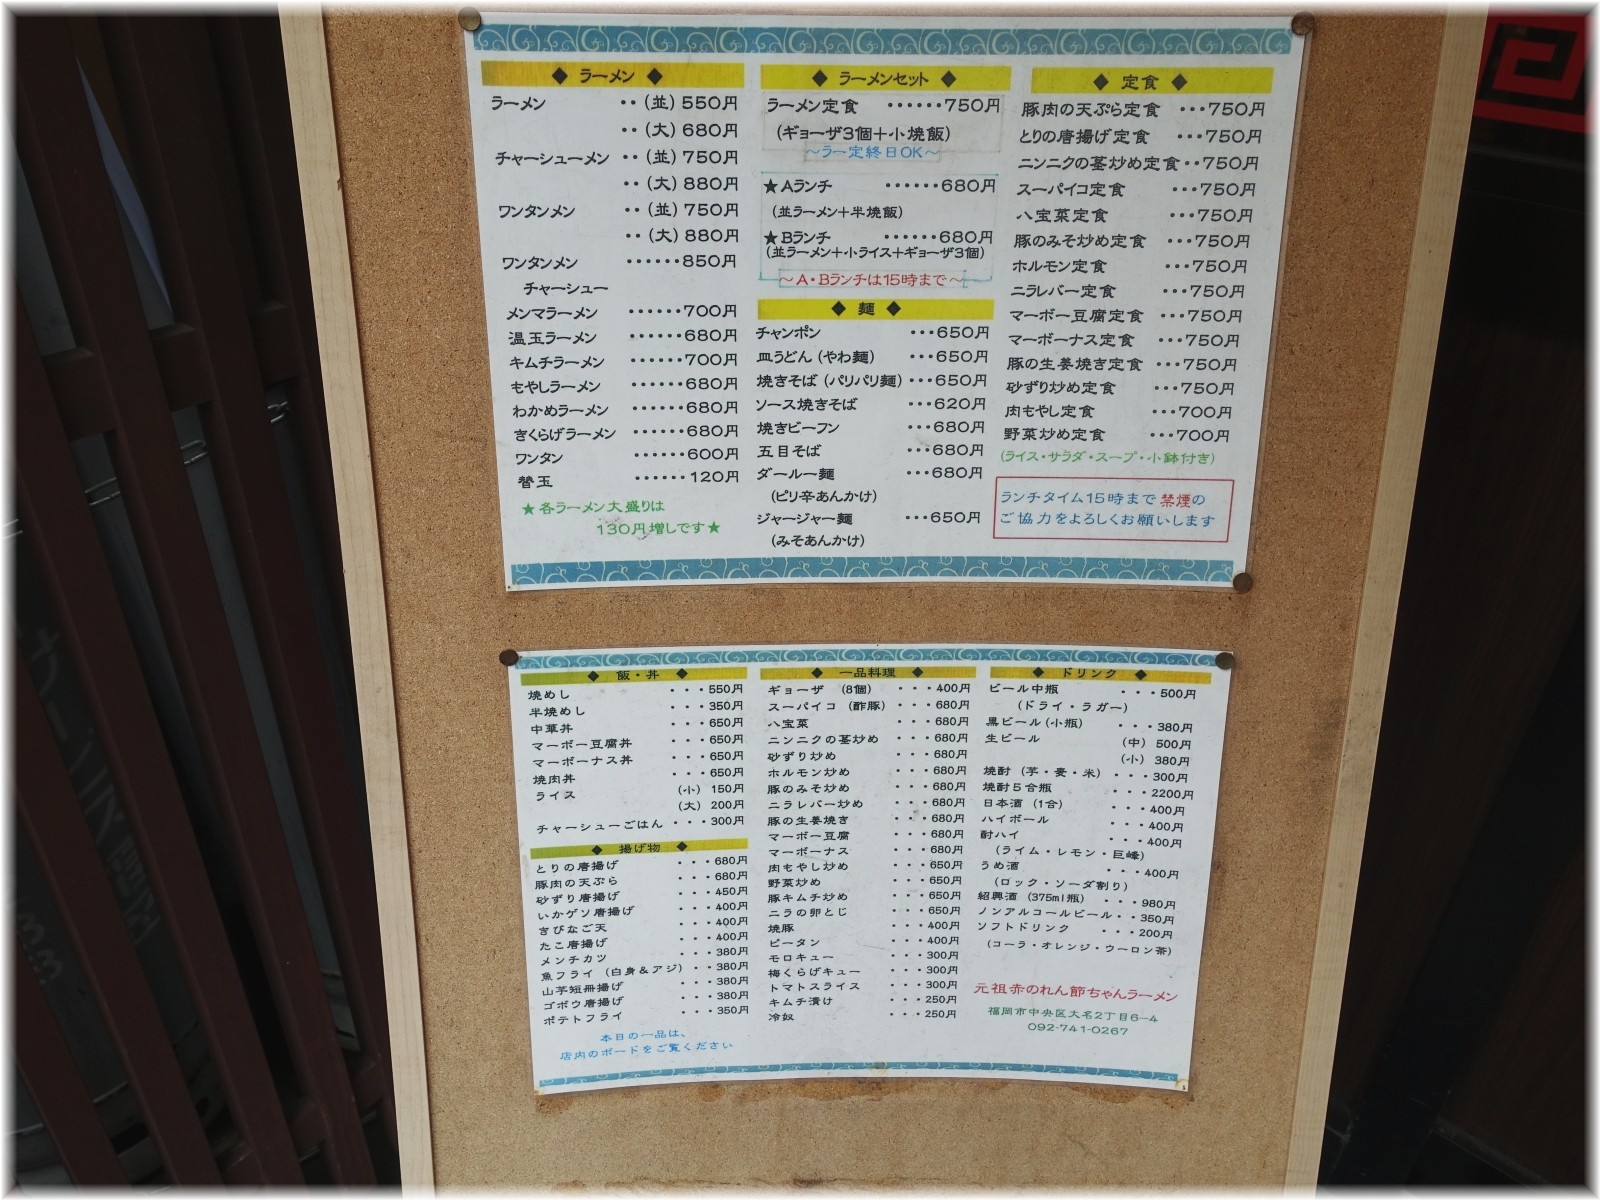 ◆ ラーメン ◆
ラーメン ‥(並)550円
‥(大)680円
チャーシューメン ‥(並)750円
‥(大)880円
ワンタンメン ‥(並)750円
‥(大)880円
ワンタンメン ‥‥‥850円
チャーシュー
メンマラーメン ‥‥‥700円
温玉ラーメン ‥‥‥680円
キムチラーメン ‥‥‥700円
もやしラーメン ‥‥‥680円
わかめラーメン ‥‥‥680円
きくらげラーメン ‥‥‥680円
ワンタン ‥‥‥600円
替玉 ‥‥‥120円
★各ラーメン大盛りは
130円増しです★
◆ ラーメンセット ◆
ラーメン定食 ‥‥‥750円
(ギョーザ3個+小焼飯)
～ラー定終日OK～
★Aランチ ‥‥‥680円
(並ラーメン+半焼飯)
★Bランチ ‥‥‥680円
(並ラーメン+小ライス+ギョーザ3個)
～A・Bランチは15時まで～
◆ 麺 ◆
チャンポン ・・・650円
皿うどん(やわ麺) ・・・650円
焼きそば(パリパリ麺)・・・650円
ソース焼きそば ・・・620円
焼きビーフン ・・・680円
五目そば ・・・680円
ダールー麺 ・・・680円
(ピリ辛あんかけ)
ジャージャー麺 ・・・650円
(みそあんかけ)
◆ 定食 ◆
豚肉の天ぷら定食 ・・・750円
とりの唐揚げ定食 ・・・750円
ニンニクの茎炒め定食・・750円
スーパイコ定食 ・・・750円
八宝菜定食 ・・・750円
豚のみそ炒め定食 ・・・750円
ホルモン定食 ・・・750円
ニラレバー定食 ・・・750円
マーボー豆腐定食 ・・・750円
マーボーナス定食 ・・・750円
豚の生姜焼き定食 ・・・750円
砂ずり炒め定食 ・・・750円
肉もやし定食 ・・・700円
野菜炒め定食 ・・・700円
(ライス・サラダ・スープ・小鉢付き)
ランチタイム15時まで禁煙の
ご協力をよろしくお願いします
◆ 飯・丼 ◆
焼めし ・・・550円
半焼めし ・・・350円
中華丼 ・・・650円
マーボー豆腐丼 ・・・650円
マーボーナス丼 ・・・650円
焼肉丼 ・・・650円
ライス (小) 150円
(大) 200円
チャーシューごはん ・・・300円
◆ 揚げ物 ◆
とりの唐揚げ ・・・680円
豚肉の天ぷら ・・・680円
砂ずり唐揚げ ・・・450円
いかゲソ唐揚げ ・・・400円
きびなご天 ・・・400円
たこ唐揚げ ・・・400円
メンチカツ ・・・380円
魚フライ (白身&アジ) ・・380円
山芋短冊揚げ ・・・380円
ゴボウ唐揚げ ・・・380円
ポテトフライ ・・・350円
本日の一品は、
店内のボードをご覧ください
◆ 一品料理 ◆
ギョーザ (8個) ・・・400円
スーパイコ (酢豚) ・・・680円
八宝菜 ・・・680円
ニンニクの茎炒め ・・・680円
砂ずり炒め ・・・680円
ホルモン炒め ・・・680円
豚のみそ炒め ・・・680円
ニラレバー炒め ・・・680円
豚の生姜焼き ・・・680円
マーボー豆腐 ・・・680円
マーボーナス ・・・680円
肉もやし炒め ・・・650円
野菜炒め ・・・650円
豚キムチ炒め ・・・650円
ニラの卵とじ ・・・650円
焼豚 ・・・400円
ピータン ・・・400円
モロキュー ・・・300円
梅くらげキュー ・・・300円
トマトスライス ・・・300円
キムチ漬け ・・・250円
冷奴 ・・・250円
◆ ドリンク ◆
ビール中瓶 ・・・500円
(ドライ・ラガー)
黒ビール(小瓶) ・・・380円
生ビール (中) 500円
(小) 380円
焼酎 (芋・麦・米) ・・・300円
焼酎5合瓶 ・・・2200円
日本酒 (1合) ・・・400円
ハイボール ・・・400円
酎ハイ ・・・400円
(ライム・レモン・巨峰)
うめ酒 ・・・400円
(ロック・ソーダ割り)
紹興酒 (375ml瓶) ・・・980円
ノンアルコールビール・・350円
ソフトドリンク ・・・200円
(コーラ・オレンジ・ウーロン茶)
元祖赤のれん節ちゃんラーメン
福岡市中央区大名2丁目6-4
092-741-0267